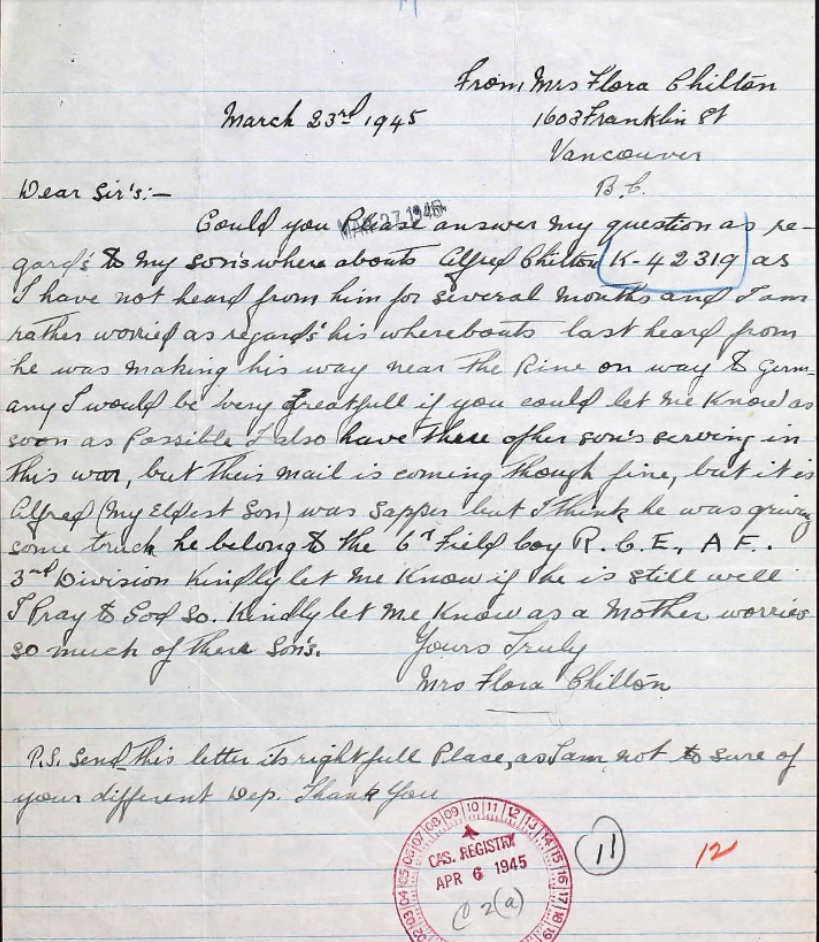 From Mrs Flora Chilton
March 23rd 1945
1603 Franklin St
Vancouver
B.C.
Dear Sir's:-
Could you Please answer my question as re-
MAR 27 1945
gard's to my son's where abouts Alfred Chilton K-42319 as
I have not heard from him for several months and I am
rather worried as regard's his wherebouts last heard from
he was making his way near the Rine on way to Germ-
any I would be very greatfull if you could let me know as
soon as Possible I also have three other son's serving in
this war, but their mail is coming though fine, but it is
Alfred (my Eldest Son) was Sapper but I think he was driving
some truck he belong to the 6th Field Coy R.C.E., A F..
3rd Division Kindly let me know if he is still well
I Pray to God so. Kindly let me know as a Mother worries
so much of there Son's.
Yours Truly
Mrs Flora Chilton
P.S. Send this letter its rightfull Place, as I am not to sure of
your different Dep. Thank You
02 03 04 05 06 07 08 09 10 11 12 13 14 15 16 17 18 19
CAS. REGISTRY
APR 6 1945
C 2(a)
11
12